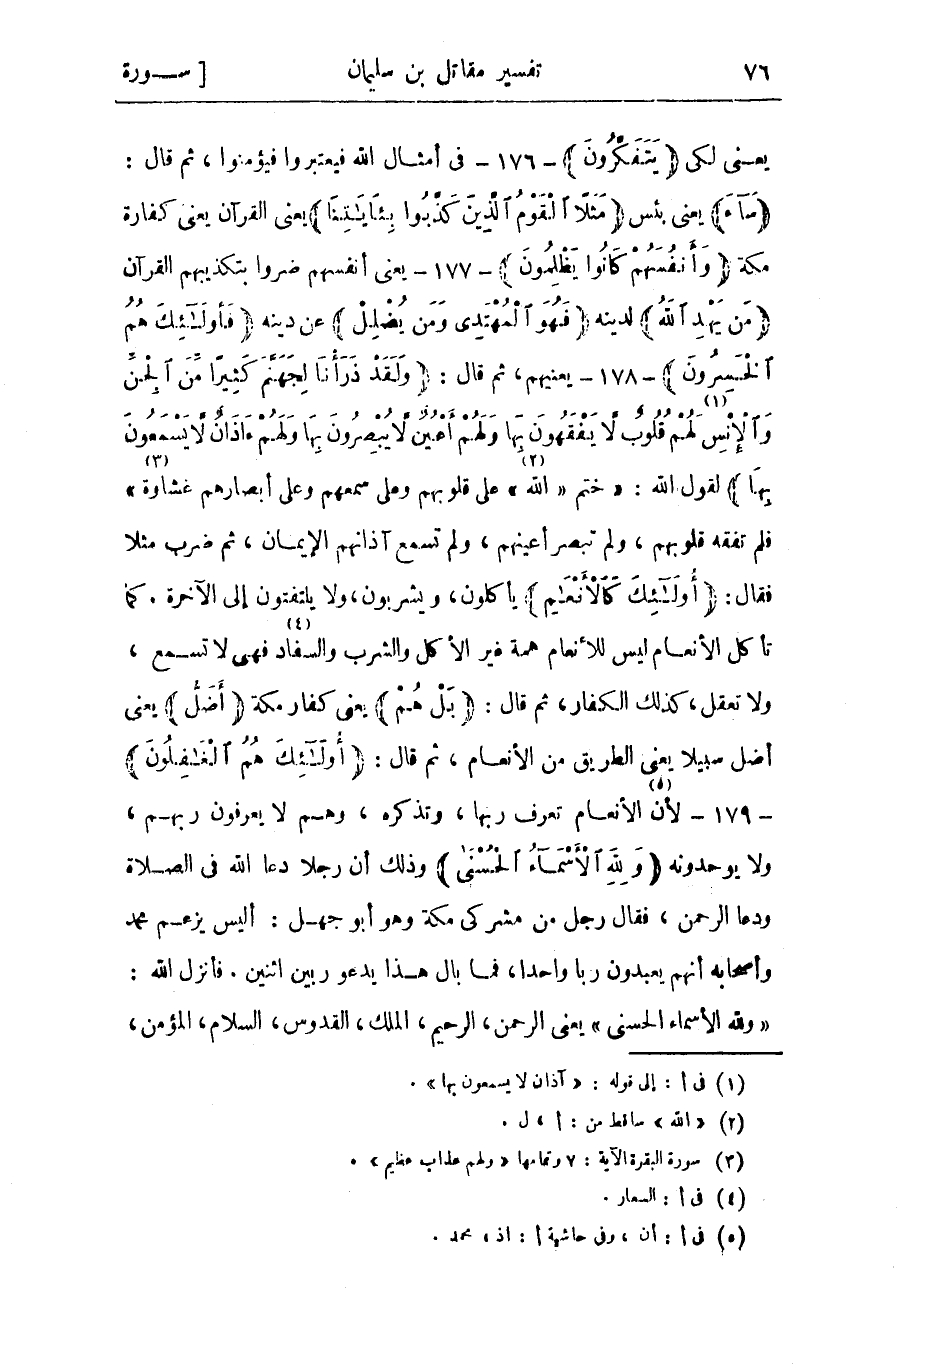 ٧٦ تفسير مقاتل بن سليمان [ سـورة
يعـنى لكى ﴿ يَتَفَكَّرُونَ ﴾ - ١٧٦ - فى أمثـال الله فيعتبروا فيؤمنوا ، ثم قال :
﴿ سَآءَ ﴾ يعنى بئس ﴿ مَثَلًا ٱلْقَوْمُ ٱلَّذِينَ كَذَّبُوا بِـَٔايَـٰتِنَا ﴾ يعنى القرآن يعنى كفارة
مكة ﴿ وَأَنفُسَهُمْ كَانُوا يَظْلِمُونَ ﴾ - ١٧٧ - يعنى أنفسهم ضروا بتكذيبهم القرآن
﴿ مَن يَهْدِ ٱللَّهُ ﴾ لدينه ﴿ فَهُوَ ٱلْمُهْتَدِى وَمَن يُضْلِلْ ﴾ عن دينه ﴿ فَأُولَـٰٓئِكَ هُمُ
ٱلْخَـٰسِرُونَ ﴾ - ١٧٨ - يعنيهم ، ثم قال : ﴿ وَلَقَدْ ذَرَأْنَا لِجَهَنَّمَ كَثِيرًا مِّنَ ٱلْجِنِّ
وَٱلْإِنْسِ لَهُمْ قُلُوبٌ (١) لَّا يَفْقَهُونَ بِهَا وَلَهُمْ أَعْيُنٌ لَّا يُبْصِرُونَ بِهَا وَلَهُمْ ءَاذَانٌ لَّا يَسْمَعُونَ
بِهَا ﴾ لقول الله : « ختم « الله (٢) » على قلوبهم وعلى سمعهم وعلى أبصارهم غشاوة (٣) »
فلم تفقه قلوبهم ، ولم تبصر أعينهم ، ولم تسمع آذانهم الإيمـان ، ثم ضرب مثلا
فقال : ﴿ أُولَـٰٓئِكَ كَٱلْأَنْعَـٰمِ ﴾ يأكلون ، ويشربون ، ولا يلتفتون إلى الآخرة . كما
تأكل الأنعـام ليس للأنعام همة غير الأكل والشرب والسفاد (٤) فهى لا تسـمع ،
ولا تعقل ، كذلك الكفار ، ثم قال : ﴿ بَلْ هُمْ ﴾ يعنى كفار مكة ﴿ أَضَلُّ ﴾ يعنى
أضل سبيلا يعنى الطريق من الأنعـام ، ثم قال : ﴿ أُولَـٰٓئِكَ هُمُ ٱلْغَـٰفِلُونَ ﴾
- ١٧٩ - لأن (٥) الأنعـام تعرف ربها ، وتذكره ، وهـم لا يعرفون ربهـم ،
ولا يوحدونه ﴿ وَلِلَّهِ ٱلْأَسْمَـآءُ ٱلْحُسْنَىٰ ﴾ وذلك أن رجلا دعا الله فى الصـلاة
ودعا الرحمن ، فقال رجل من مشركى مكة وهو أبو جهـل : أليس يزعـم محمد
وأصحابه أنهم يعبدون ربا واحدا ، فمـا بال هـذا يدعو ربين اثنين . فأنزل الله :
« ولله الأسماء الحسنى » يعنى الرحمن ، الرحيم ، الملك ، القدوس ، السلام ، المؤمن ،
(١) فى أ : إلى قوله : « آذان لا يسمعون بها » .
(٢) « الله » ساقط من : أ ، ل .
(٣) سورة البقرة الآية : ٧ وتمامها « ولهم عذاب عظيم » .
(٤) فى أ : السعار .
(٥) فى أ : أن ، وفى حاشية أ : اذ ، محمد .